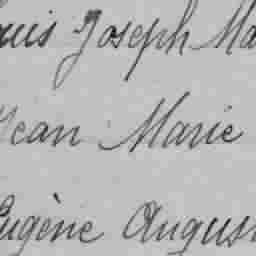 ouis Joseph Ma
Jean Marie
Eugène Augus